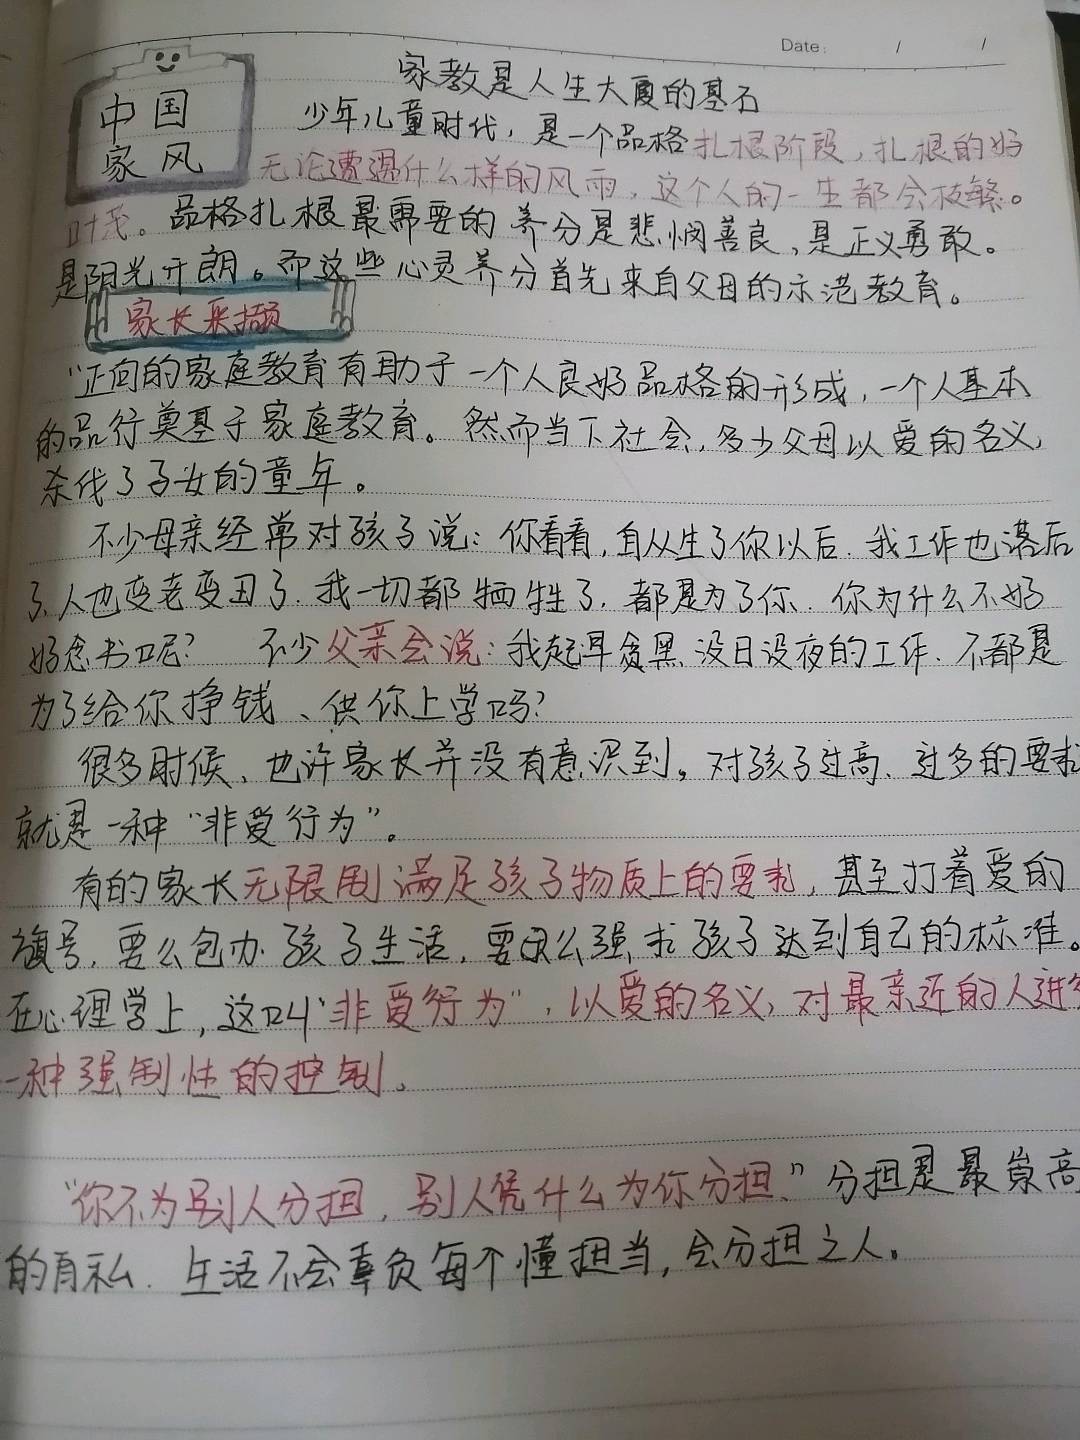 Date: / /
中国
家风
家教是人生大厦的基石
少年儿童时代，是一个品格扎根阶段，扎根的好
无论遭遇什么样的风雨，这个人的一生都会枝繁。
叶茂。品格扎根最需要的养分是悲悯善良，是正义勇敢。
是阳光开朗。而这些心灵养分首先来自父母的示范教育。
家长采撷
“正向的家庭教育有助于一个人良好品格的形成，一个人基本
的品行奠基于家庭教育。然而当下社会，多少父母以爱的名义，
杀伐了子女的童年。
不少母亲经常对孩子说：你看看，自从生了你以后．我工作也落后
了、人也变老变丑了．我一切都牺牲了，都是为了你．你为什么不好
好念书呢？ 不少父亲会说：我起早贪黑、没日没夜的工作、不都是
为了给你挣钱、供你上学吗？
很多时候、也许家长并没有意识到。对孩子过高、过多的要求
就是一种“非爱行为”。
有的家长无限制满足孩子物质上的要求，甚至打着爱的
旗号，要么包办孩子生活，要么强求孩子达到自己的标准。
在心理学上，这叫“非爱行为”，以爱的名义，对最亲近的人进行
一种强制性的控制。
“你不为别人分担，别人凭什么为你分担、”分担是最崇高
的自私．生活不会辜负每个懂担当，会分担之人。